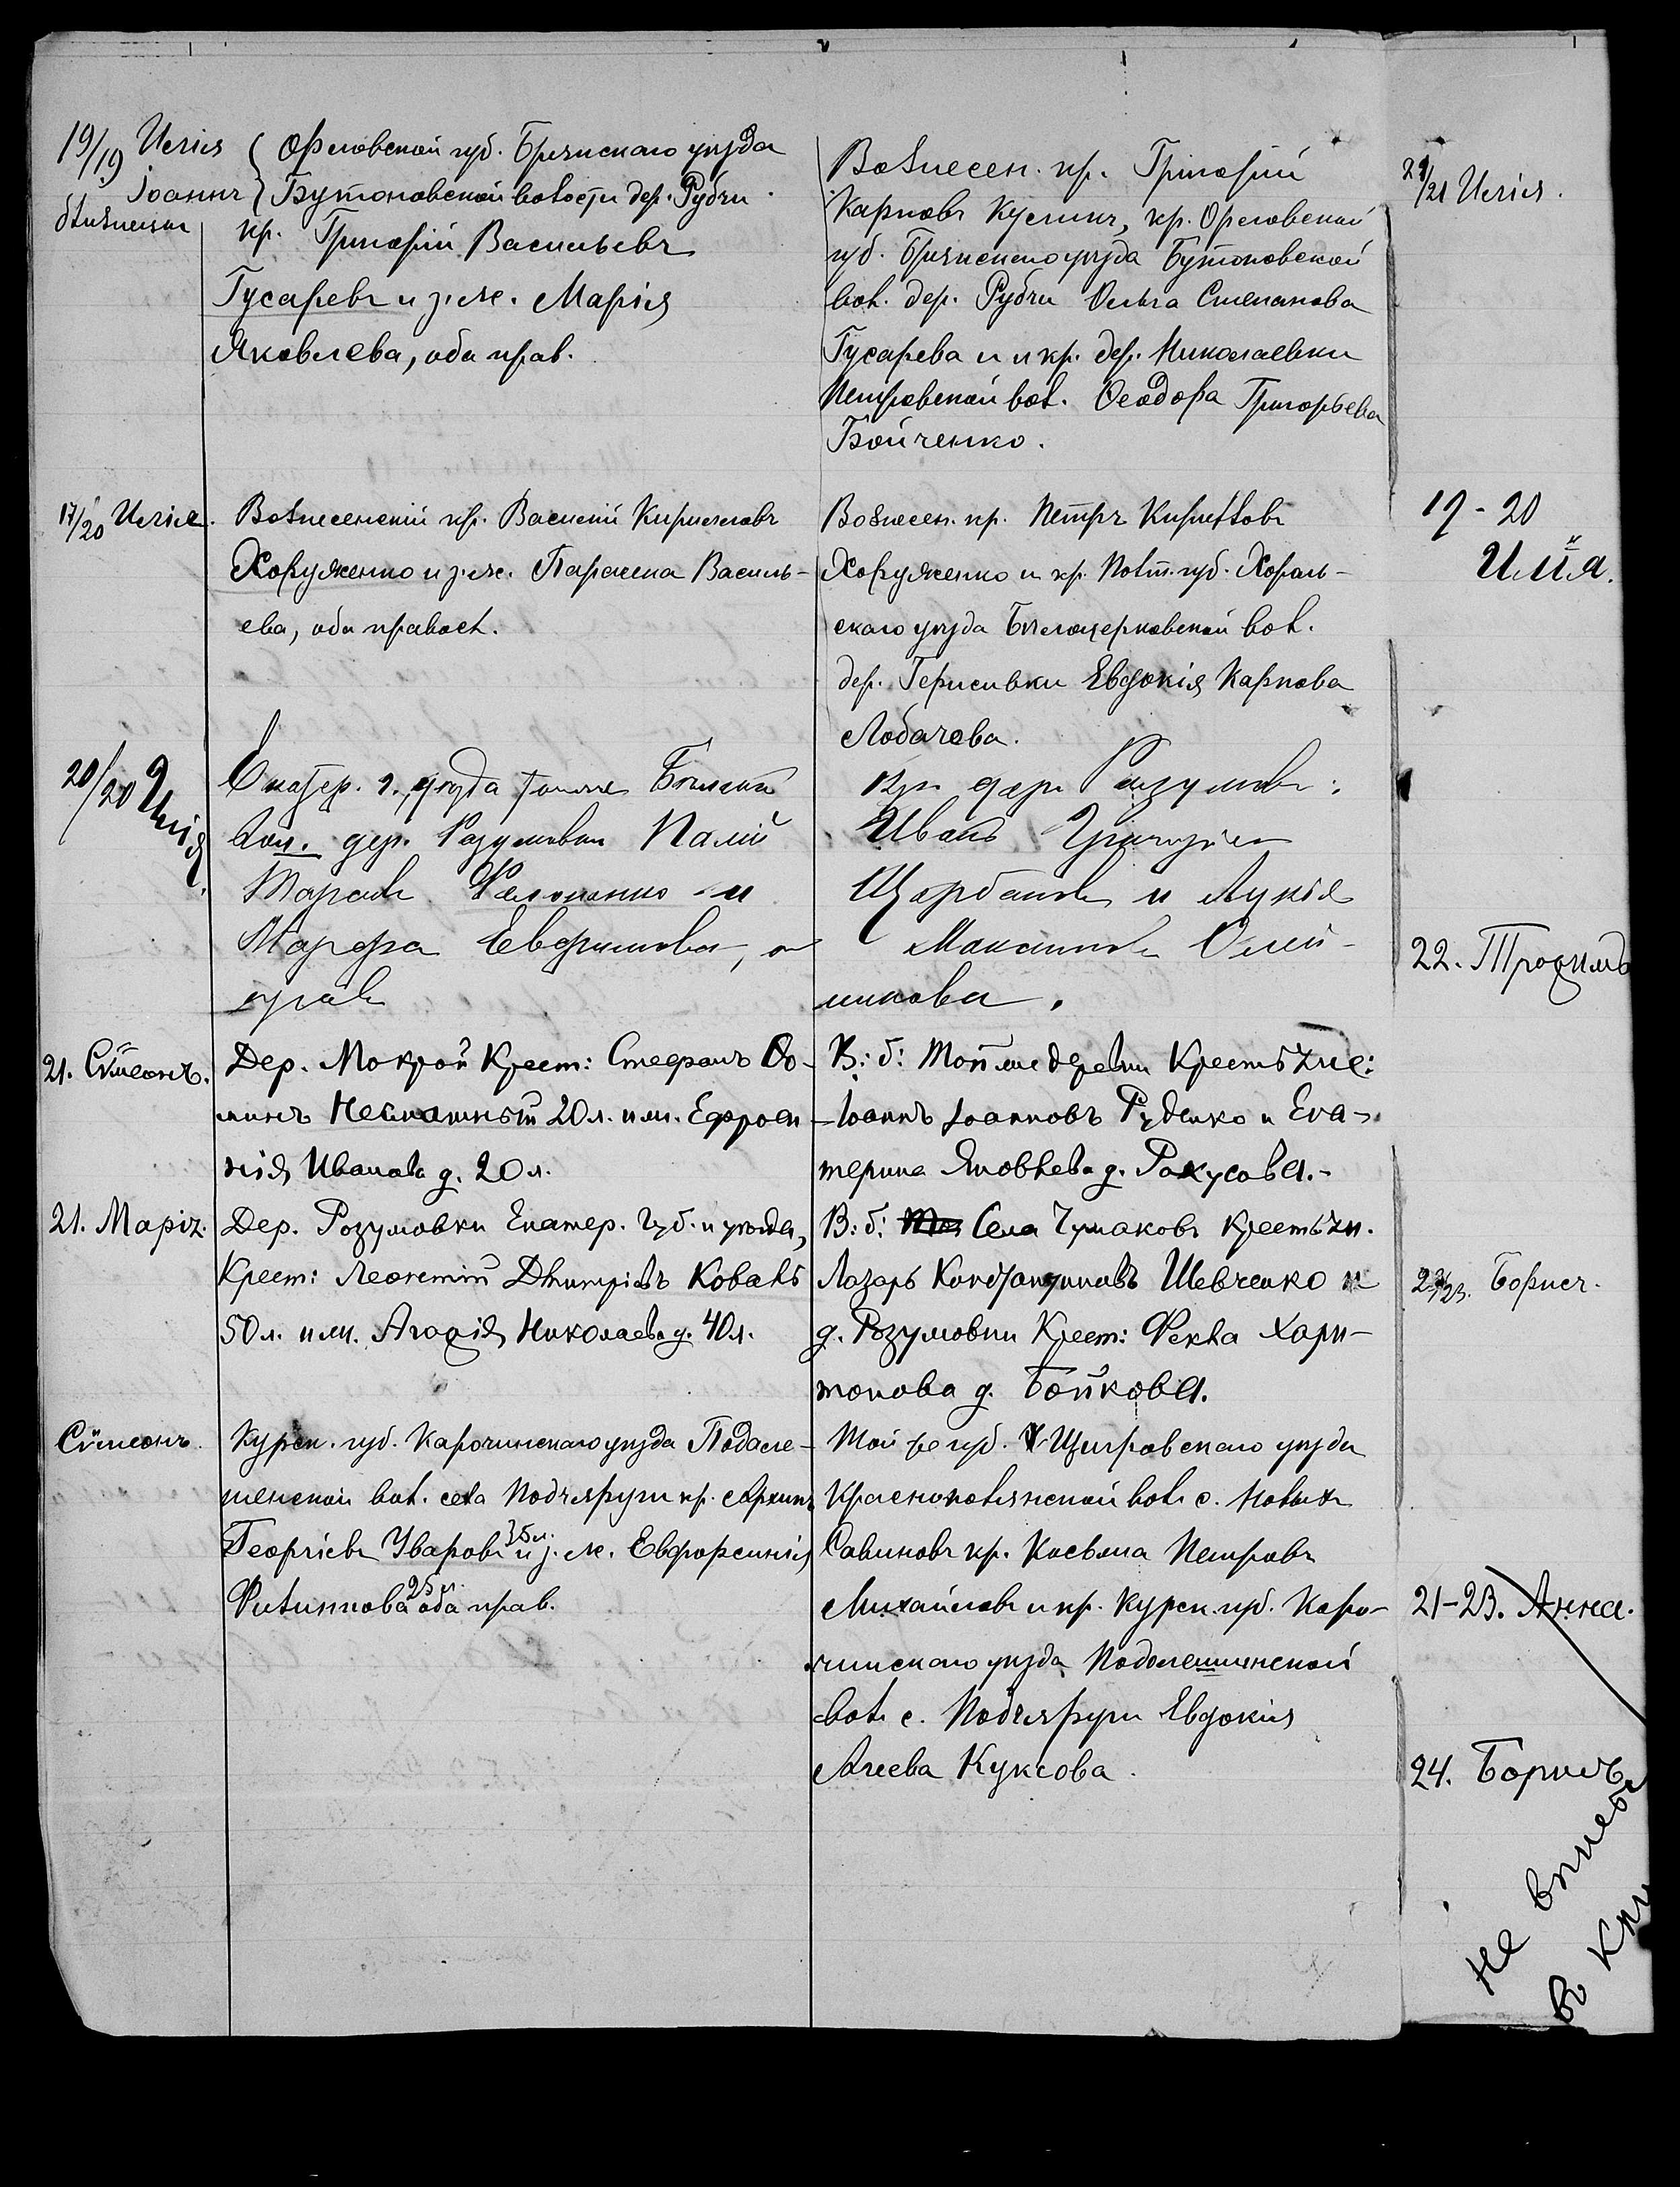 19/19 Илія
Іоаннъ
близнецы
Орловской губ. Брянскаго уѣзда
Бутоновской волости дер. Рубчи
кр. Григорій Васильевъ
Гусаревъ и з. ж. Марія
Яковлева, оба прав.
Вознесен. кр. Григорій
Карповъ Куслинъ, кр. Орловской
губ. Брянскаго уѣзда Бутоновской
вол. дер. Рубчи Ольга Степанова
Гусарева и кр. дер. Николаевки
Петровской вол. Ѳеодора Григорьева
Бойченко.
21/21 Илія.
17/20 Илія.
Вознесенскій кр. Василій Кирилловъ
Хоруженко и з. ж. Параскева Василь-
ева, оба правосл.
Вознесен. кр. Петръ Кирилловъ
Хоруженко и кр. Полт. губ. Хороль-
скаго уѣзда Бѣлоцерковской вол.
дер. Герисивки Евдокія Карпова
Лобачева.
19-20
Илія.
20/20 Илія.
Екатер. г., уѣзда тоже
вол. дер. Разумовки
Тарасъ и
Марфа Евфимова, о
прав
кр. дер. Разумовк:
Иванъ Григорьев
Щербаковъ и Лукія
Максимова Олей-
никова.
22. Трофимъ
21. Сѵмеонъ.
Дер. Мокрой Крест: Стефанъ Ѳо-
минъ 20 л. и ж. Ефроси-
нія Иванова д. 20 л.
В: б: Той же деревни Крестьяне:
Іоаннъ Іоанновъ Руденко и Ека-
терина Яковлева д. Ракусова.-
21. Марія.
Дер. Розумовки Екатер. Губ. и уѣзда,
Крест: Леонтій Дмитріевъ Коваль
50 л. и ж. Агафія Николаева д. 40 л.
В: б: Села Чумаковъ Крестьян.
Лазарь Константиновъ Шевченко и
д. Розумовки Крест: Фекла Хари-
тонова д. Бойкова.
23/23. Борисъ.
Сѵмеонъ.
Курск. губ. Карочинскаго уѣзда Подоле-
шенской вол. села Подъяруги кр. Архипъ
Георгіевъ Уваровъ 35 л. и з. ж. Евфросинія
Филиппова 25 л. оба прав.
Той же губ. Щигровскаго уѣзда
Краснополянской вол. с. Новыхъ
Савиновъ кр. Косьма Петровъ
Михайловъ и кр. Курск. губ. Каро-
чинскаго уѣзда Подолешинской
вол. с. Подъяруги Евдокія
Агеева Куксова.
21-23. Анна.
24. Борисъ
не вписы
въ кни